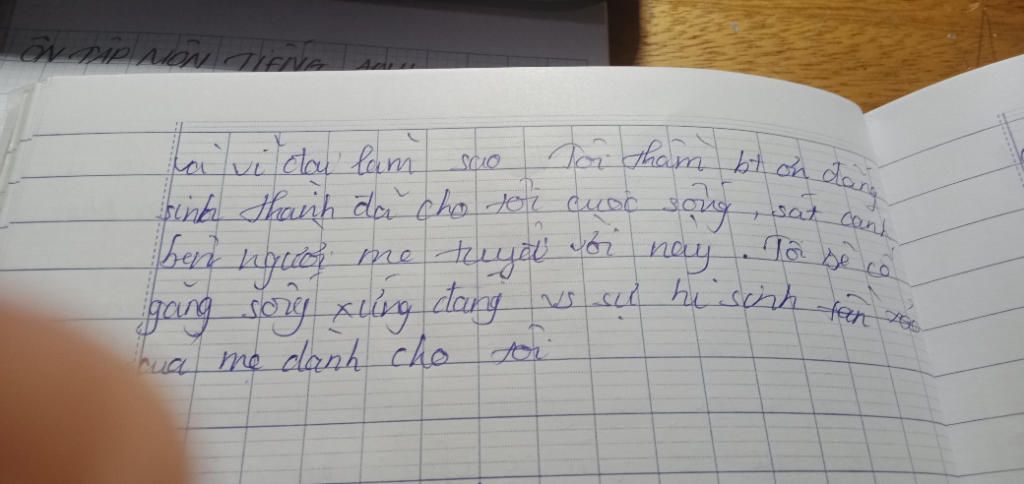 ÔN TẬP MÔN TIẾNG ANH
và vĩ đại làm sao Tôi thầm bt ơn đấng
sinh thành đã cho tôi cuộc sống, sát cánh
bên người mẹ tuyệt vời này. Tôi sẽ cố
gắng sống xứng đáng vs sự hi sinh
của mẹ dành cho tôi